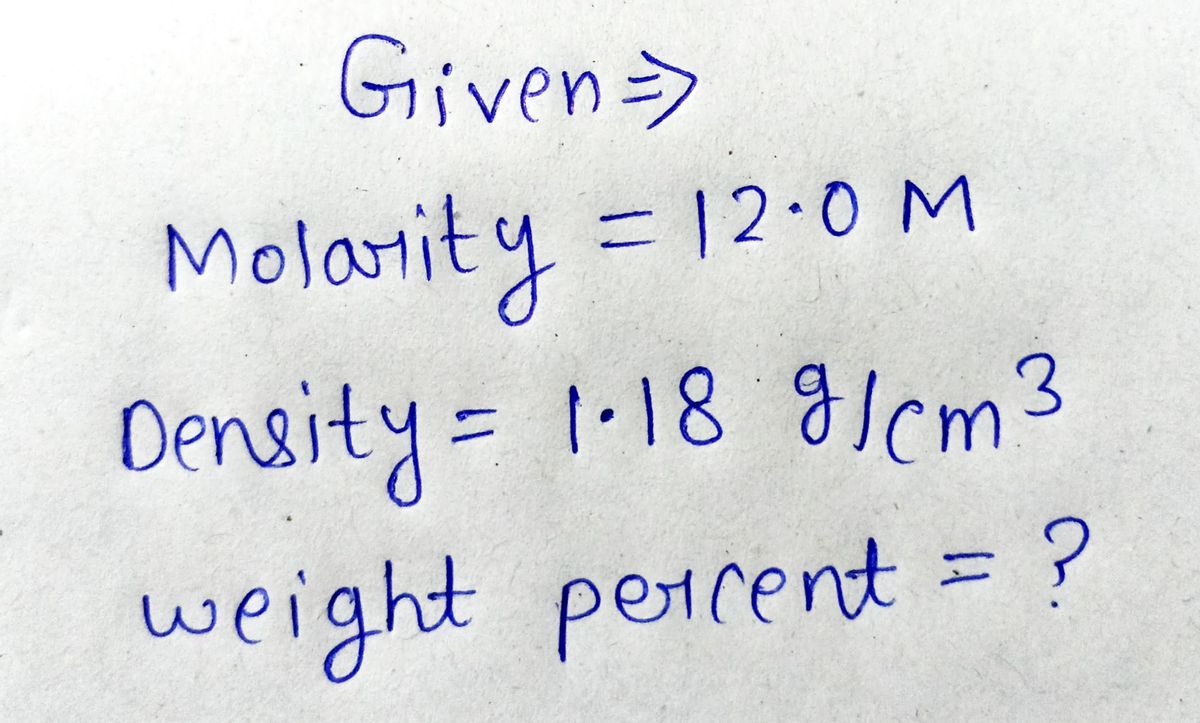 Given ⇒
Molarity = 12.0 M
Density = 1.18 g/cm³
weight percent = ?